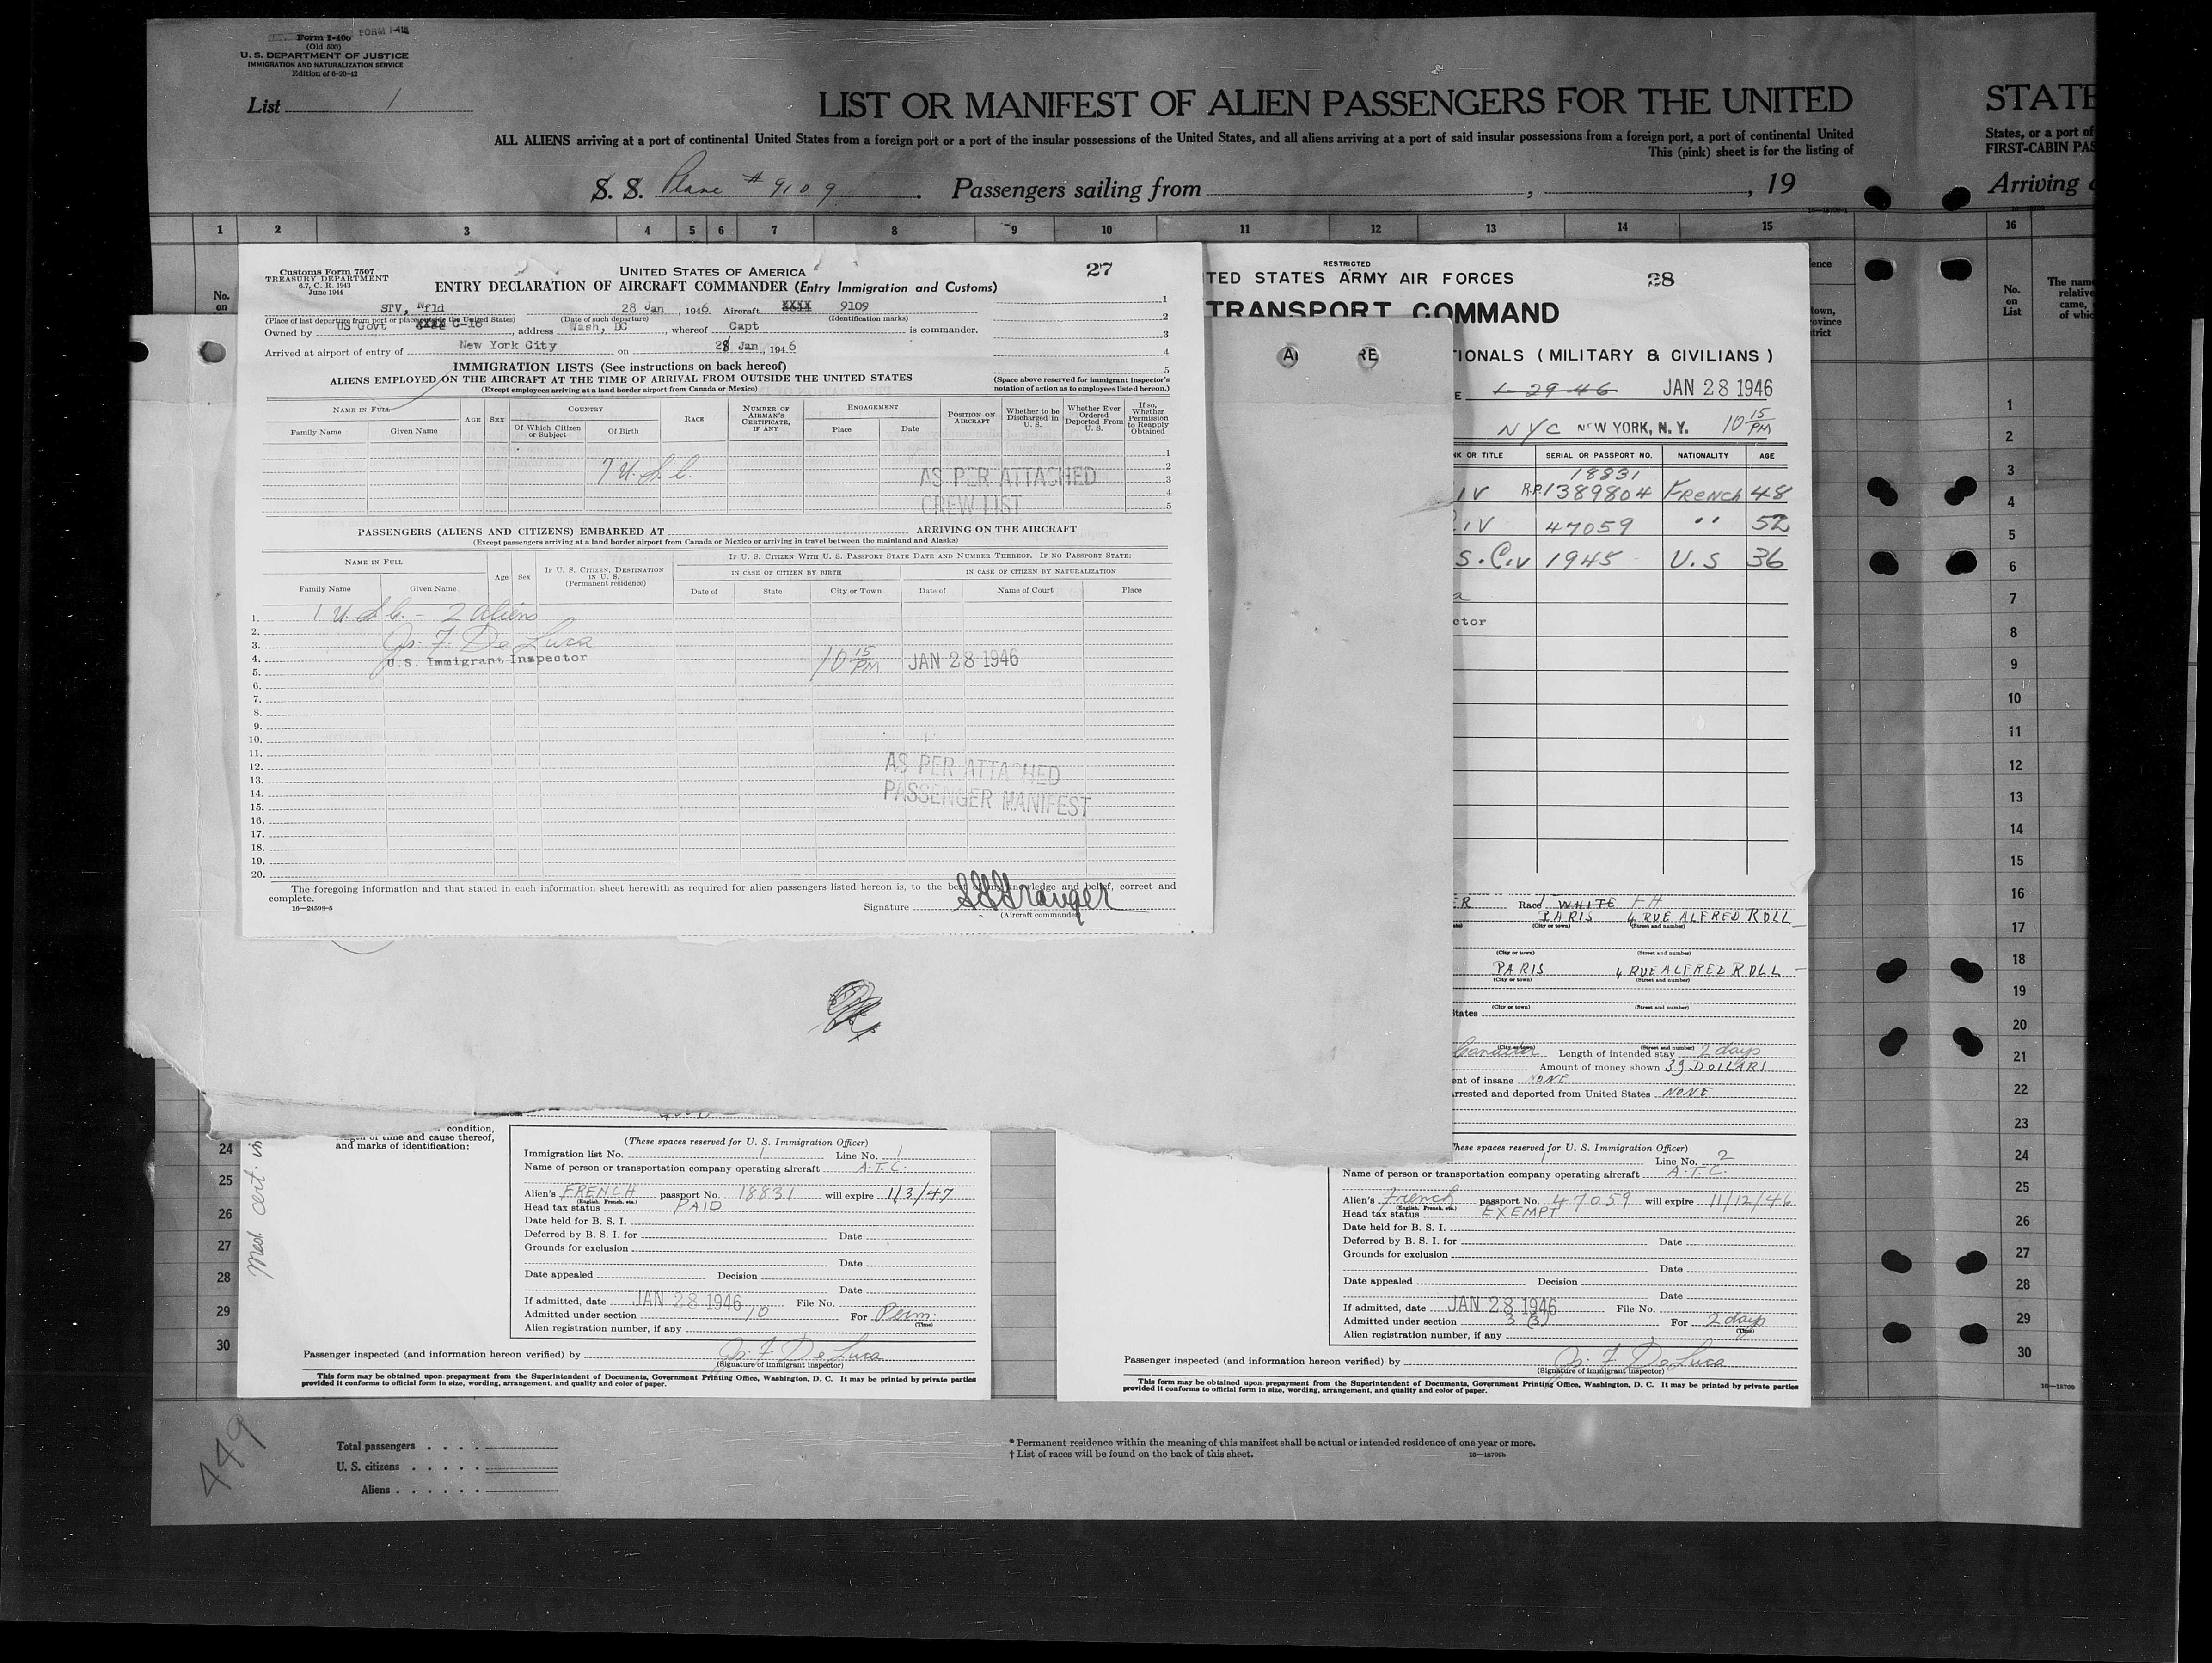 Form I-466 FORM I-418
(Old 500)
U. S. DEPARTMENT OF JUSTICE
IMMIGRATION AND NATURALIZATION SERVICE
Edition of 6-20-42
List 1
LIST OR MANIFEST OF ALIEN PASSENGERS FOR THE UNITED
STATE
ALL ALIENS arriving at a port of continental United States from a foreign port or a port of the insular possessions of the United States, and all aliens arriving at a port of said insular possessions from a foreign port, a port of continental United
States, or a port of
This (pink) sheet is for the listing of
FIRST-CABIN PAS
S. S. Plane # 9109. Passengers sailing from , , 19
Arriving
1 2 3 4 5 6 7 8 9 10 11 12 13 14 15 16
No. on
Customs Form 7507
TREASURY DEPARTMENT
6.7, C. R. 1943
June 1944
UNITED STATES OF AMERICA
27
ENTRY DECLARATION OF AIRCRAFT COMMANDER (Entry Immigration and Customs)
STV, Nfld 28 Jan, 1946 Aircraft XXXX 9109
(Place of last departure from port or place outside the United States) (Date of such departure) (Identification marks)
Owned by US Govt XXXX C-18, address Wash, DC, whereof Capt is commander.
Arrived at airport of entry of New York City on 28 Jan, 1946
1
2
3
4
5
IMMIGRATION LISTS (See instructions on back hereof)
ALIENS EMPLOYED ON THE AIRCRAFT AT THE TIME OF ARRIVAL FROM OUTSIDE THE UNITED STATES
(Except employees arriving at a land border airport from Canada or Mexico)
(Space above reserved for immigrant inspector's notation of action as to employees listed hereon.)
NAME IN FULL
Family Name Given Name
AGE SEX
COUNTRY
Of Which Citizen or Subject Of Birth
RACE
NUMBER OF AIRMAN'S CERTIFICATE, IF ANY
ENGAGEMENT
Place Date
POSITION ON AIRCRAFT
Whether to be Discharged in U. S.
Whether Ever Ordered Deported From U. S.
If so, Whether Permission to Reapply Obtained
7 U.S.C.
AS PER ATTACHED
CREW LIST
1
2
3
4
5
PASSENGERS (ALIENS AND CITIZENS) EMBARKED AT ARRIVING ON THE AIRCRAFT
(Except passengers arriving at a land border airport from Canada or Mexico or arriving in travel between the mainland and Alaska)
NAME IN FULL
Family Name Given Name
Age Sex
IF U. S. CITIZEN, DESTINATION IN U. S.
(Permanent residence)
IF U. S. CITIZEN WITH U. S. PASSPORT STATE DATE AND NUMBER THEREOF. IF NO PASSPORT STATE:
IN CASE OF CITIZEN BY BIRTH IN CASE OF CITIZEN BY NATURALIZATION
Date of State City or Town Date of Name of Court Place
1. 1 U.S.C. - 2 aliens
2.
3. Js. F. De Luca
4. U.S. Immigrant Inspector 10 15 PM JAN 28 1946
5.
6.
7.
8.
9.
10.
11.
12. AS PER ATTACHED
13.
14. PASSENGER MANIFEST
15.
16.
17.
18.
19.
20.
The foregoing information and that stated in each information sheet herewith as required for alien passengers listed hereon is, to the best of my knowledge and belief, correct and
complete.
16-24598-5
Signature
(Aircraft commander)
RESTRICTED
TED STATES ARMY AIR FORCES 28
TRANSPORT COMMAND
IONALS (MILITARY & CIVILIANS)
E 1-29-46 JAN 28 1946
NYC NEW YORK, N. Y. 10 15 PM
NK OR TITLE SERIAL OR PASSPORT NO. NATIONALITY AGE
18831
IV R.P.1389804 FRENCH 48
IV 47059 " 52
S. Civ 1945 U.S 36
a
ctor
ER Race WHITE FH
PARIS 4 RUE ALFRED ROLL
(City or town) (Street and number)
(City or town) (Street and number)
PARIS 4 RUE ALFRED ROLL
(City or town) (Street and number)
(City or town) (Street and number)
tates
(City or town) (Street and number)
Length of intended stay 2 days
Amount of money shown 39 DOLLARS
ent of insane NONE
rrested and deported from United States NONE
condition,
of time and cause thereof,
and marks of identification:
Med. cert. in
(These spaces reserved for U. S. Immigration Officer)
Immigration list No. 1 Line No. 1
Name of person or transportation company operating aircraft A.T.C.
Alien's FRENCH passport No. 18831 will expire 1/3/47
(English, French, etc.)
Head tax status PAID
Date held for B. S. I.
Deferred by B. S. I. for Date
Grounds for exclusion
Date
Date appealed Decision
Date
If admitted, date JAN 28 1946 File No.
Admitted under section 10 For Perm.
(Time)
Alien registration number, if any
Passenger inspected (and information hereon verified) by Js. F. De Luca
(Signature of immigrant inspector)
This form may be obtained upon prepayment from the Superintendent of Documents, Government Printing Office, Washington, D. C. It may be printed by private parties
provided it conforms to official form in size, wording, arrangement, and quality and color of paper.
hese spaces reserved for U. S. Immigration Officer)
1 Line No. 2
Name of person or transportation company operating aircraft A.T.C.
Alien's French passport No. 47059 will expire 11/12/46
(English, French, etc.)
Head tax status EXEMPT
Date held for B. S. I.
Deferred by B. S. I. for Date
Grounds for exclusion
Date
Date appealed Decision
Date
If admitted, date JAN 28 1946 File No.
Admitted under section 3 (3) For 2 days
(Time)
Alien registration number, if any
Passenger inspected (and information hereon verified) by Js. F. De Luca
(Signature of immigrant inspector)
This form may be obtained upon prepayment from the Superintendent of Documents, Government Printing Office, Washington, D. C. It may be printed by private parties
provided it conforms to official form in size, wording, arrangement, and quality and color of paper.
24
25
26
27
28
29
30
ence
town,
ovince
trict
No. on List
The name
relative
came,
of whic
1
2
3
4
5
6
7
8
9
10
11
12
13
14
15
16
17
18
19
20
21
22
23
24
25
26
27
28
29
30
16-18709
449
Total passengers
U. S. citizens
Aliens
* Permanent residence within the meaning of this manifest shall be actual or intended residence of one year or more.
† List of races will be found on the back of this sheet.
16-18709b